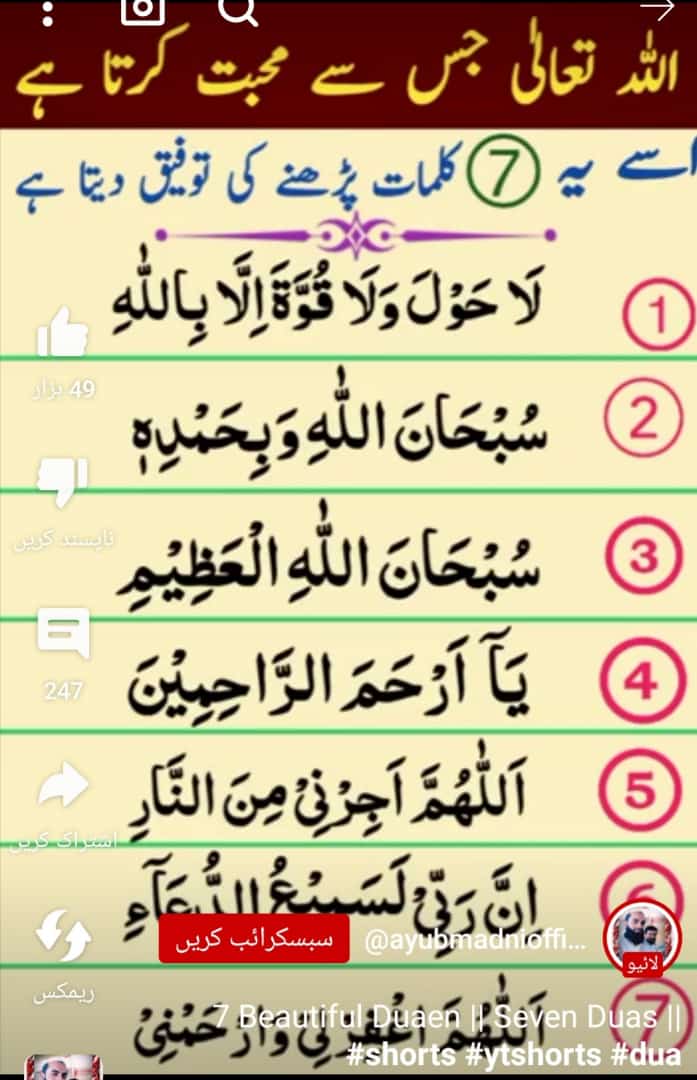 اللہ تعالیٰ جس سے محبت کرتا ہے
اسے یہ 7 کلمات پڑھنے کی توفیق دیتا ہے
1 لَا حَوْلَ وَلَا قُوَّةَ اِلَّا بِاللّٰهِ
49 ہزار
2 سُبْحَانَ اللّٰهِ وَبِحَمْدِهٖ
ناپسند کریں
3 سُبْحَانَ اللّٰهِ الْعَظِيْمِ
247
4 يَآ اَرْحَمَ الرَّاحِمِيْنَ
5 اَللّٰهُمَّ اَجِرْنِيْ مِنَ النَّارِ
اشتراک کریں
6 اِنَّ رَبِّيْ لَسَمِيْعُ الدُّعَآءِ
سبسکرائب کریں @ayubmadnioffi...
لائیو
ریمکس
7 اَللّٰهُمَّ اغْفِرْلِيْ وَارْحَمْنِيْ
7 Beautiful Duaen || Seven Duas ||
#shorts #ytshorts #dua